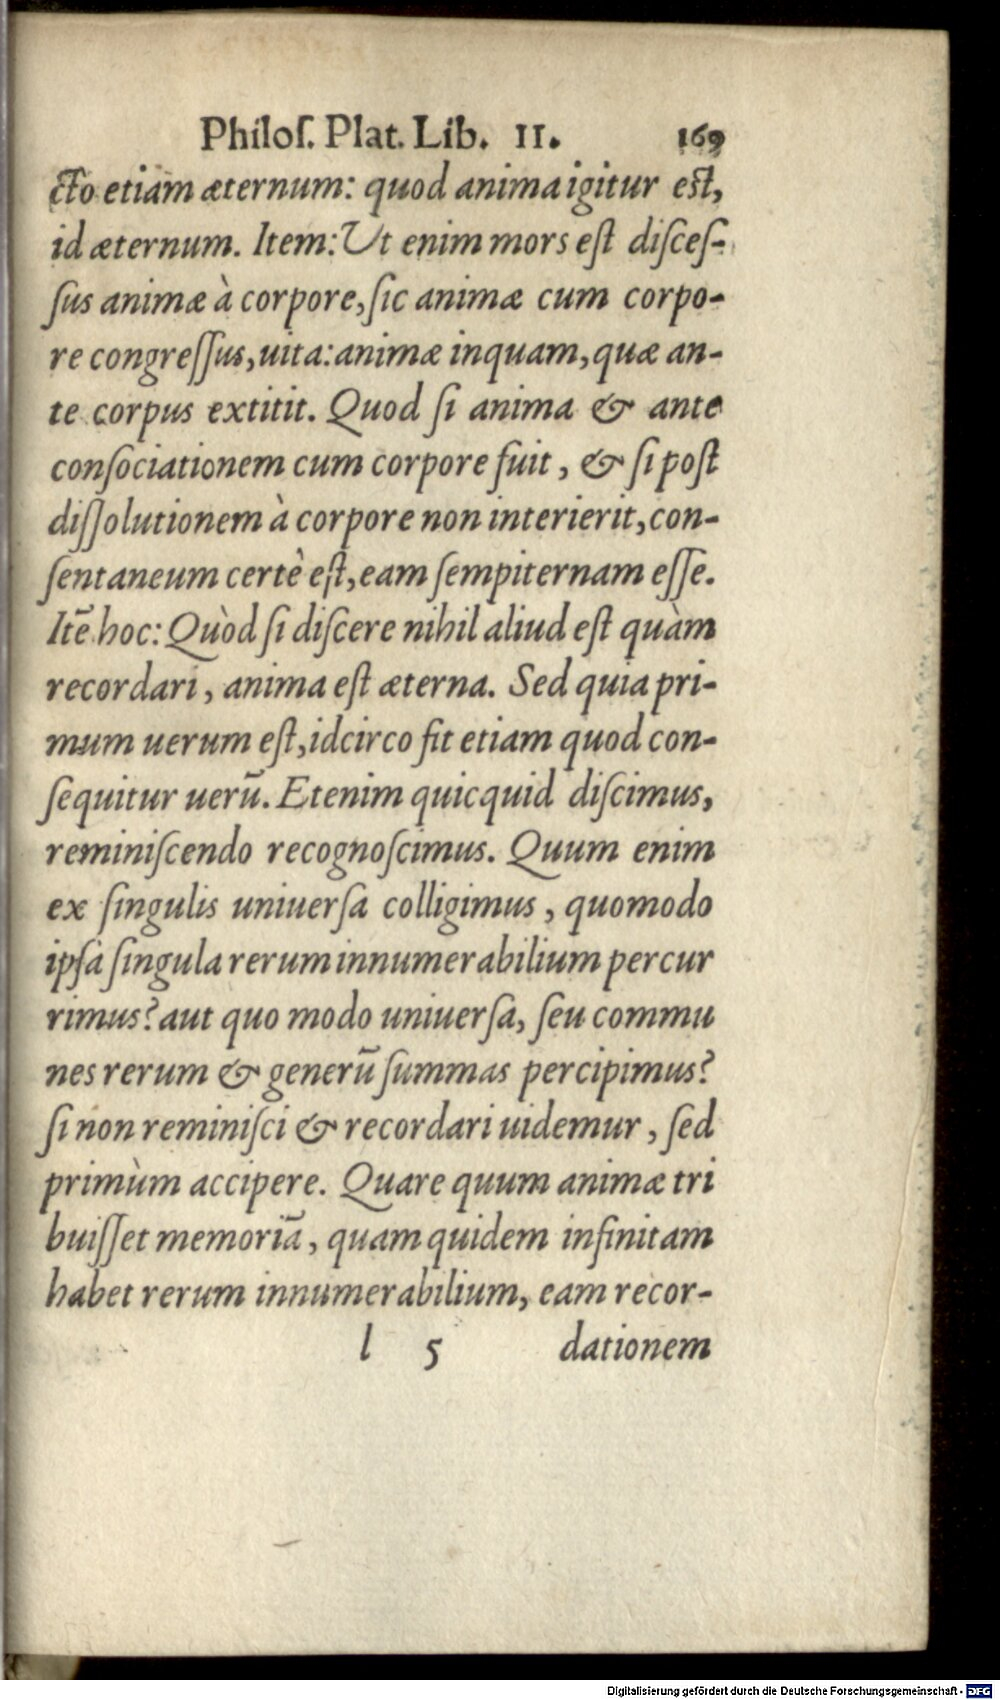 Philoſ. Plat. Lib. II. 169
cto etiam æternum: quod anima igitur eſt,
id æternum. Item: Ut enim mors eſt diſceſ-
ſus animæ à corpore, ſic animæ cum corpo-
re congreſſus, uita: animæ inquam, quæ an-
te corpus extitit. Quod ſi anima & ante
conſociationem cum corpore fuit, & ſi poſt
diſſolutionem à corpore non interierit, con-
ſentaneum certè eſt, eam ſempiternam eſſe.
Itē hoc: Quòd ſi diſcere nihil aliud eſt quàm
recordari, anima eſt æterna. Sed quia pri-
mum uerum eſt, idcirco fit etiam quod con-
ſequitur uerū. Etenim quicquid diſcimus,
reminiſcendo recognoſcimus. Quum enim
ex ſingulis uniuerſa colligimus, quomodo
ipſa ſingula rerum innumerabilium percur
rimus? aut quo modo uniuerſa, ſeu commu
nes rerum & generū ſummas percipimus?
ſi non reminiſci & recordari uidemur, ſed
primùm accipere. Quare quum animæ tri
buiſſet memoriā, quam quidem infinitam
habet rerum innumerabilium, eam recor-
l 5 dationem
Digitalisierung gefördert durch die Deutsche Forschungsgemeinschaft - DFG